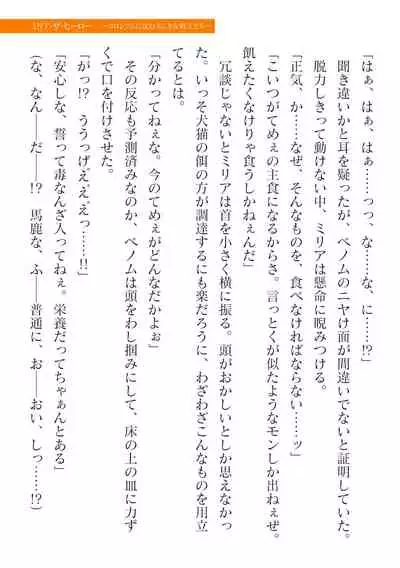 ミリア・ザ・ヒーロー
「はぁ、はぁ、はぁ……っっ、な……な、に……!?」
聞き違いかと耳を疑ったが、ベノムのニヤけ面が間違いでないと証明していた。
脱力しきって動けない中、ミリアは懸命に睨みつける。
「正気、か……なぜ、そんなものを、食べなければならない……ッ」
「こいつがてめぇの主食になるからさ。言っとくが似たようなモンしか出ねぇぜ。
飢えたくなけりゃ食うしかねぇんだ」
冗談じゃないとミリアは首を小さく横に振る。頭がおかしいとしか思えなかっ
た。いっそ犬猫の餌の方が調達するにも楽だろうに、わざわざこんなものを用立
てるとは。
「分かってねぇな。今のてめぇがどんなだかよぉ」
その反応も予測済みなのか、ベノムは頭をわし掴みにして、床の上の皿に力ず
くで口を付けさせた。
「がっ!?　ううっげぇ、ぇ、ぇっ……!!」
「安心しな、誓って毒なんざ入ってねぇ。栄養だってちゃぁんとある」
(な、なん――だ――!?　馬鹿な、ふ――普通に、お――おい、しっ……!?)